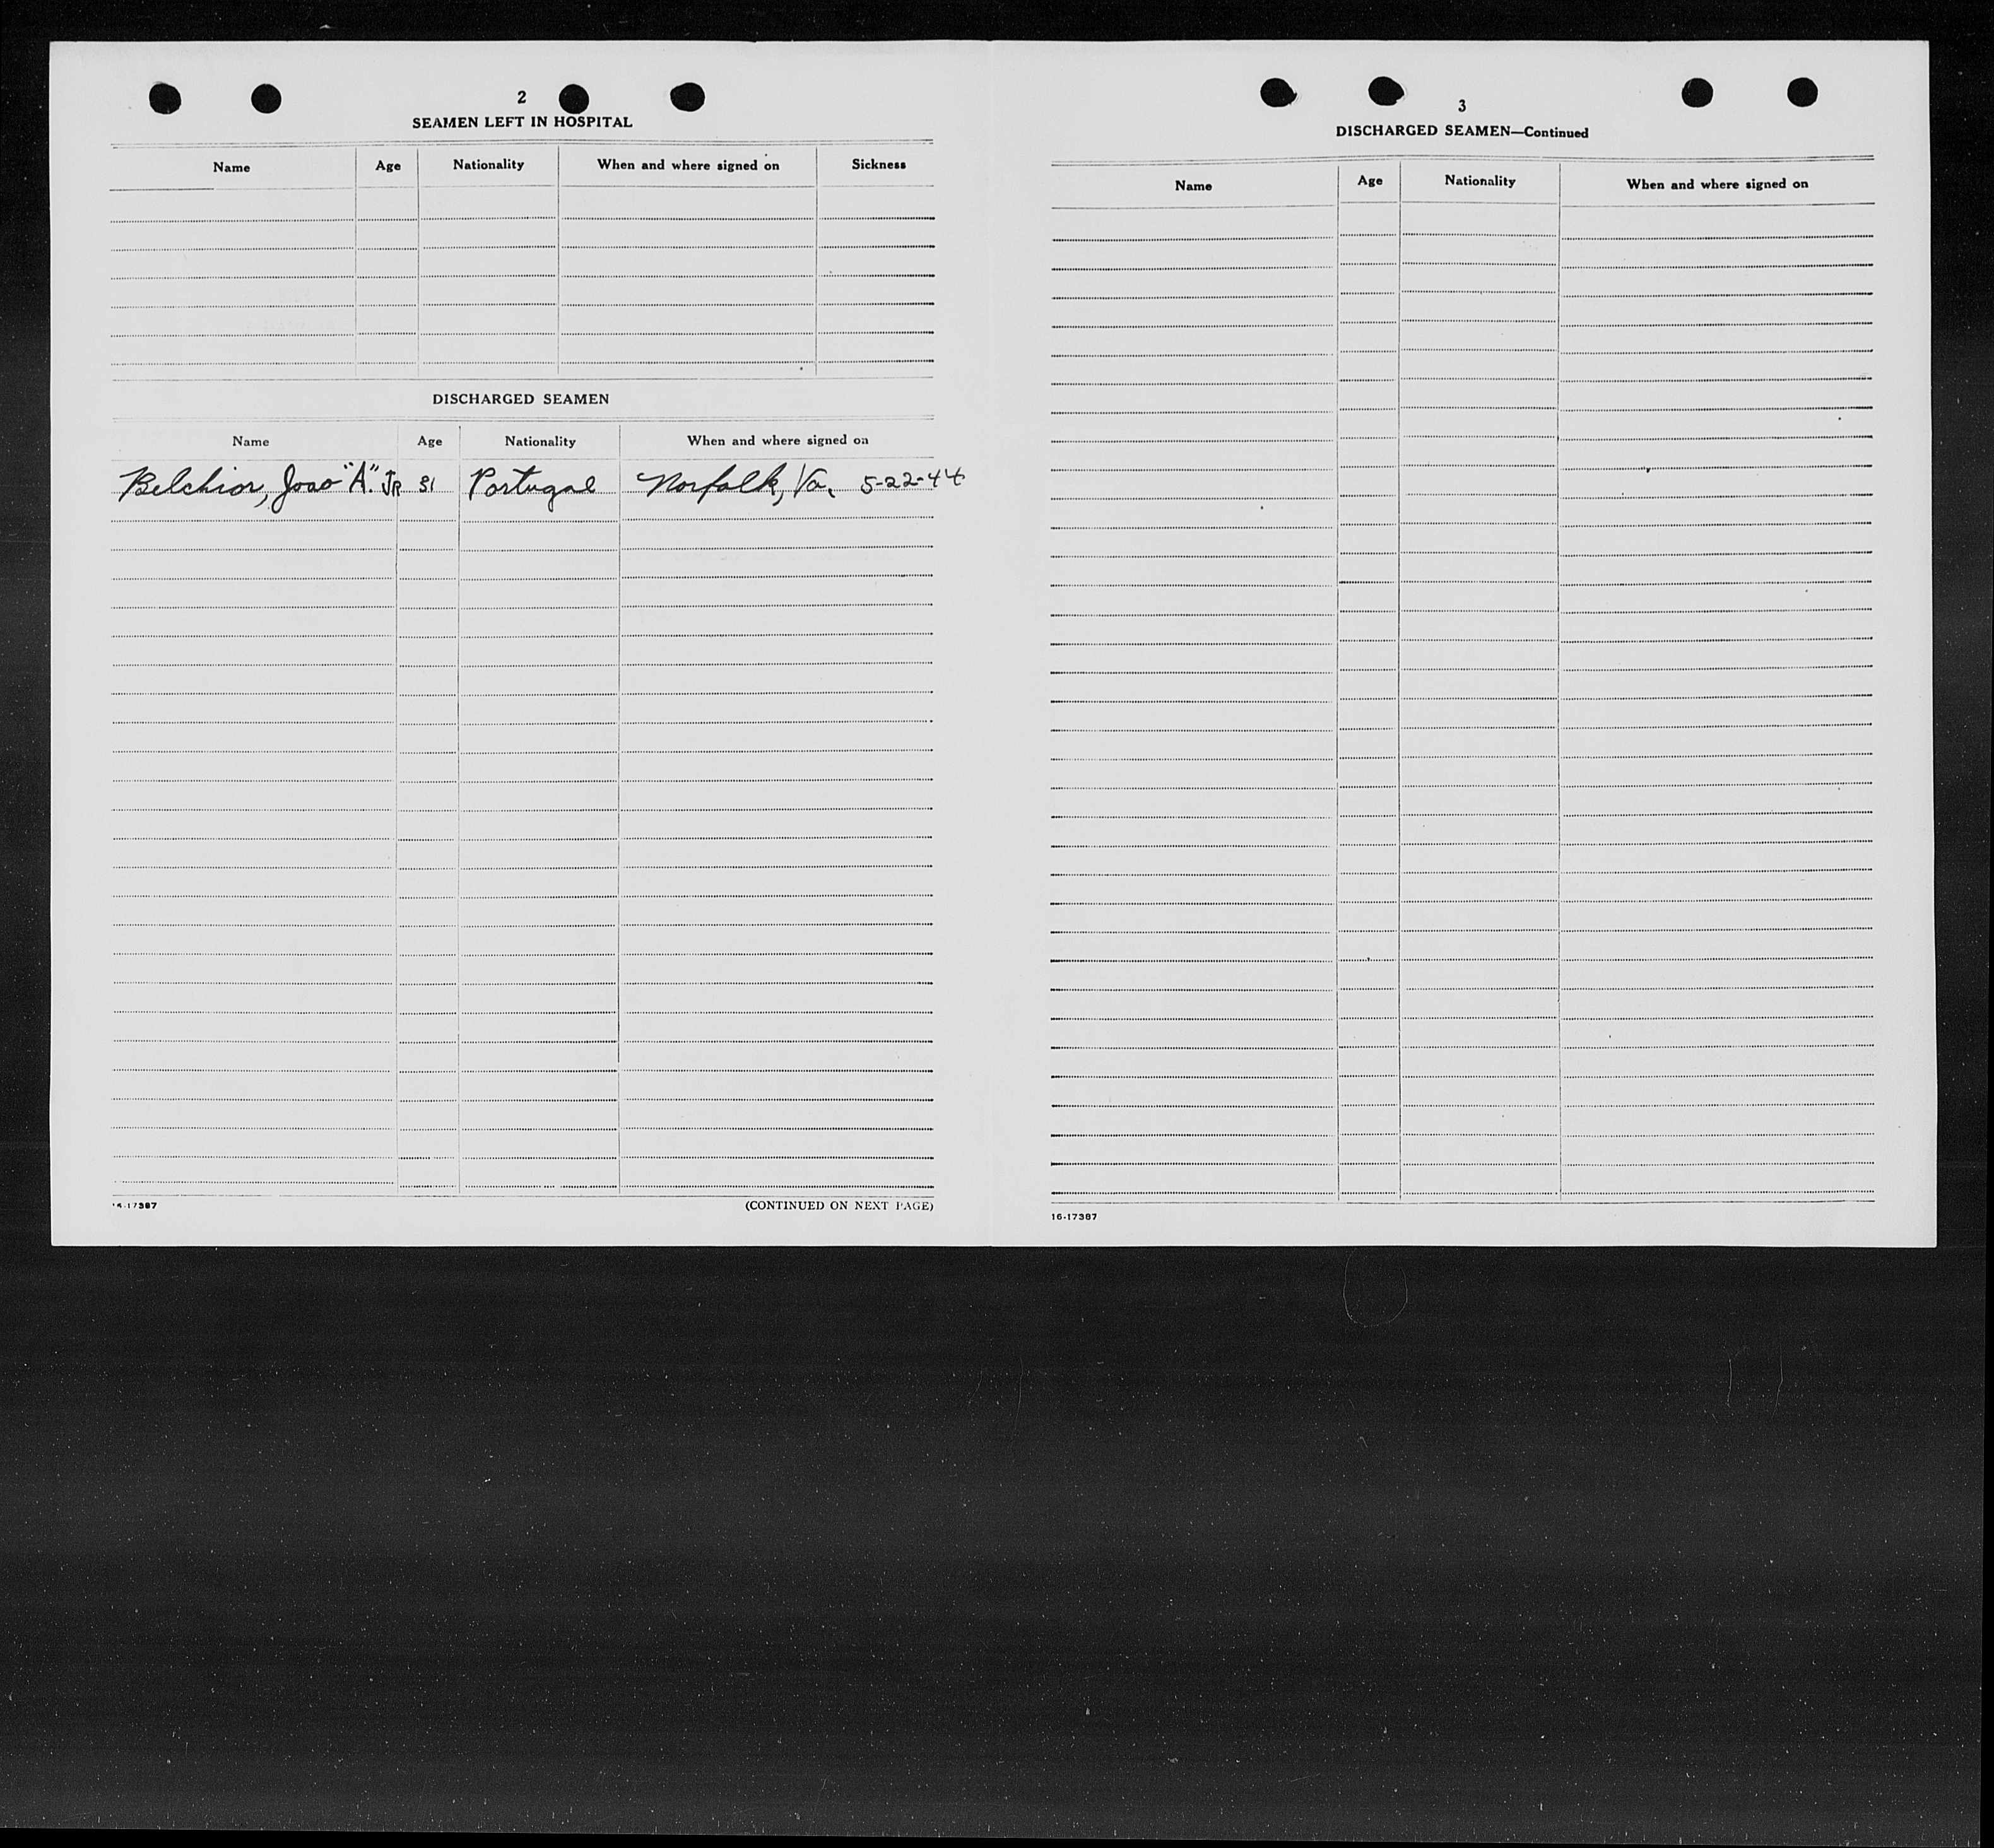 2
SEAMEN LEFT IN HOSPITAL
Name Age Nationality When and where signed on Sickness
DISCHARGED SEAMEN
Name Age Nationality When and where signed on
Belchior, Joao "A". JR 31 Portugal Norfolk, Va. 5-22-44
16-17387
(CONTINUED ON NEXT PAGE)
3
DISCHARGED SEAMEN—Continued
Name Age Nationality When and where signed on
16-17387